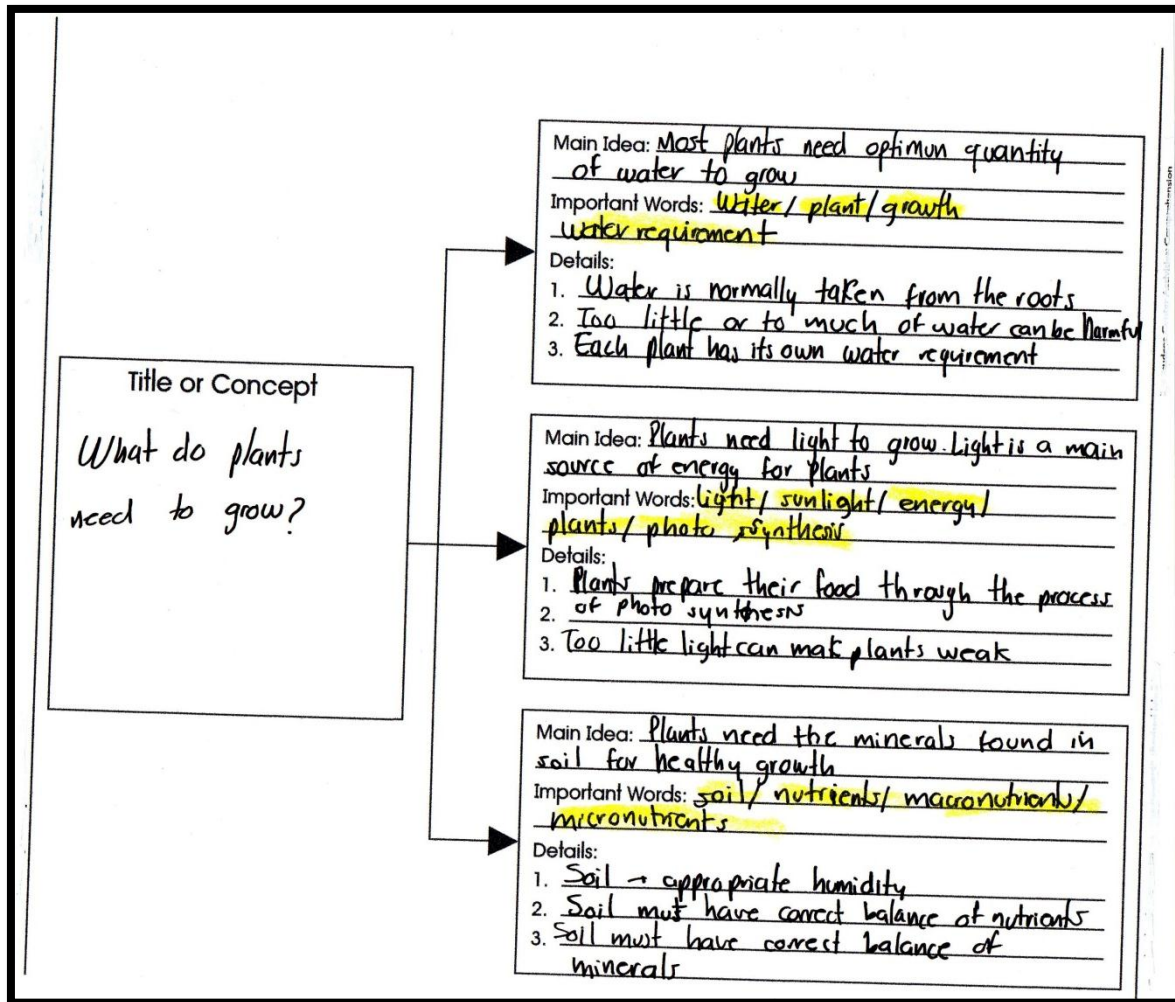 Title or Concept
What do plants
need to grow?
Main Idea: Most plants need optimun quantity
of water to grow
Important Words: Water/ plant/ growth
water requirement
Details:
1. Water is normally taken from the roots
2. Too little or to much of water can be harmful
3. Each plant has its own water requirement
Main Idea: Plants need light to grow. Light is a main
source of energy for plants
Important Words: light/ sunlight/ energy/
plants/ photo synthesis
Details:
1. Plants prepare their food through the process
2. of photo synthesis
3. Too little light can mak plants weak
Main Idea: Plants need the minerals found in
soil for healthy growth
Important Words: soil/ nutrients/ macronutrients/
micronutrients
Details:
1. Soil → appropriate humidity
2. Soil must have correct balance of nutrients
3. Soil must have correct balance of
minerals